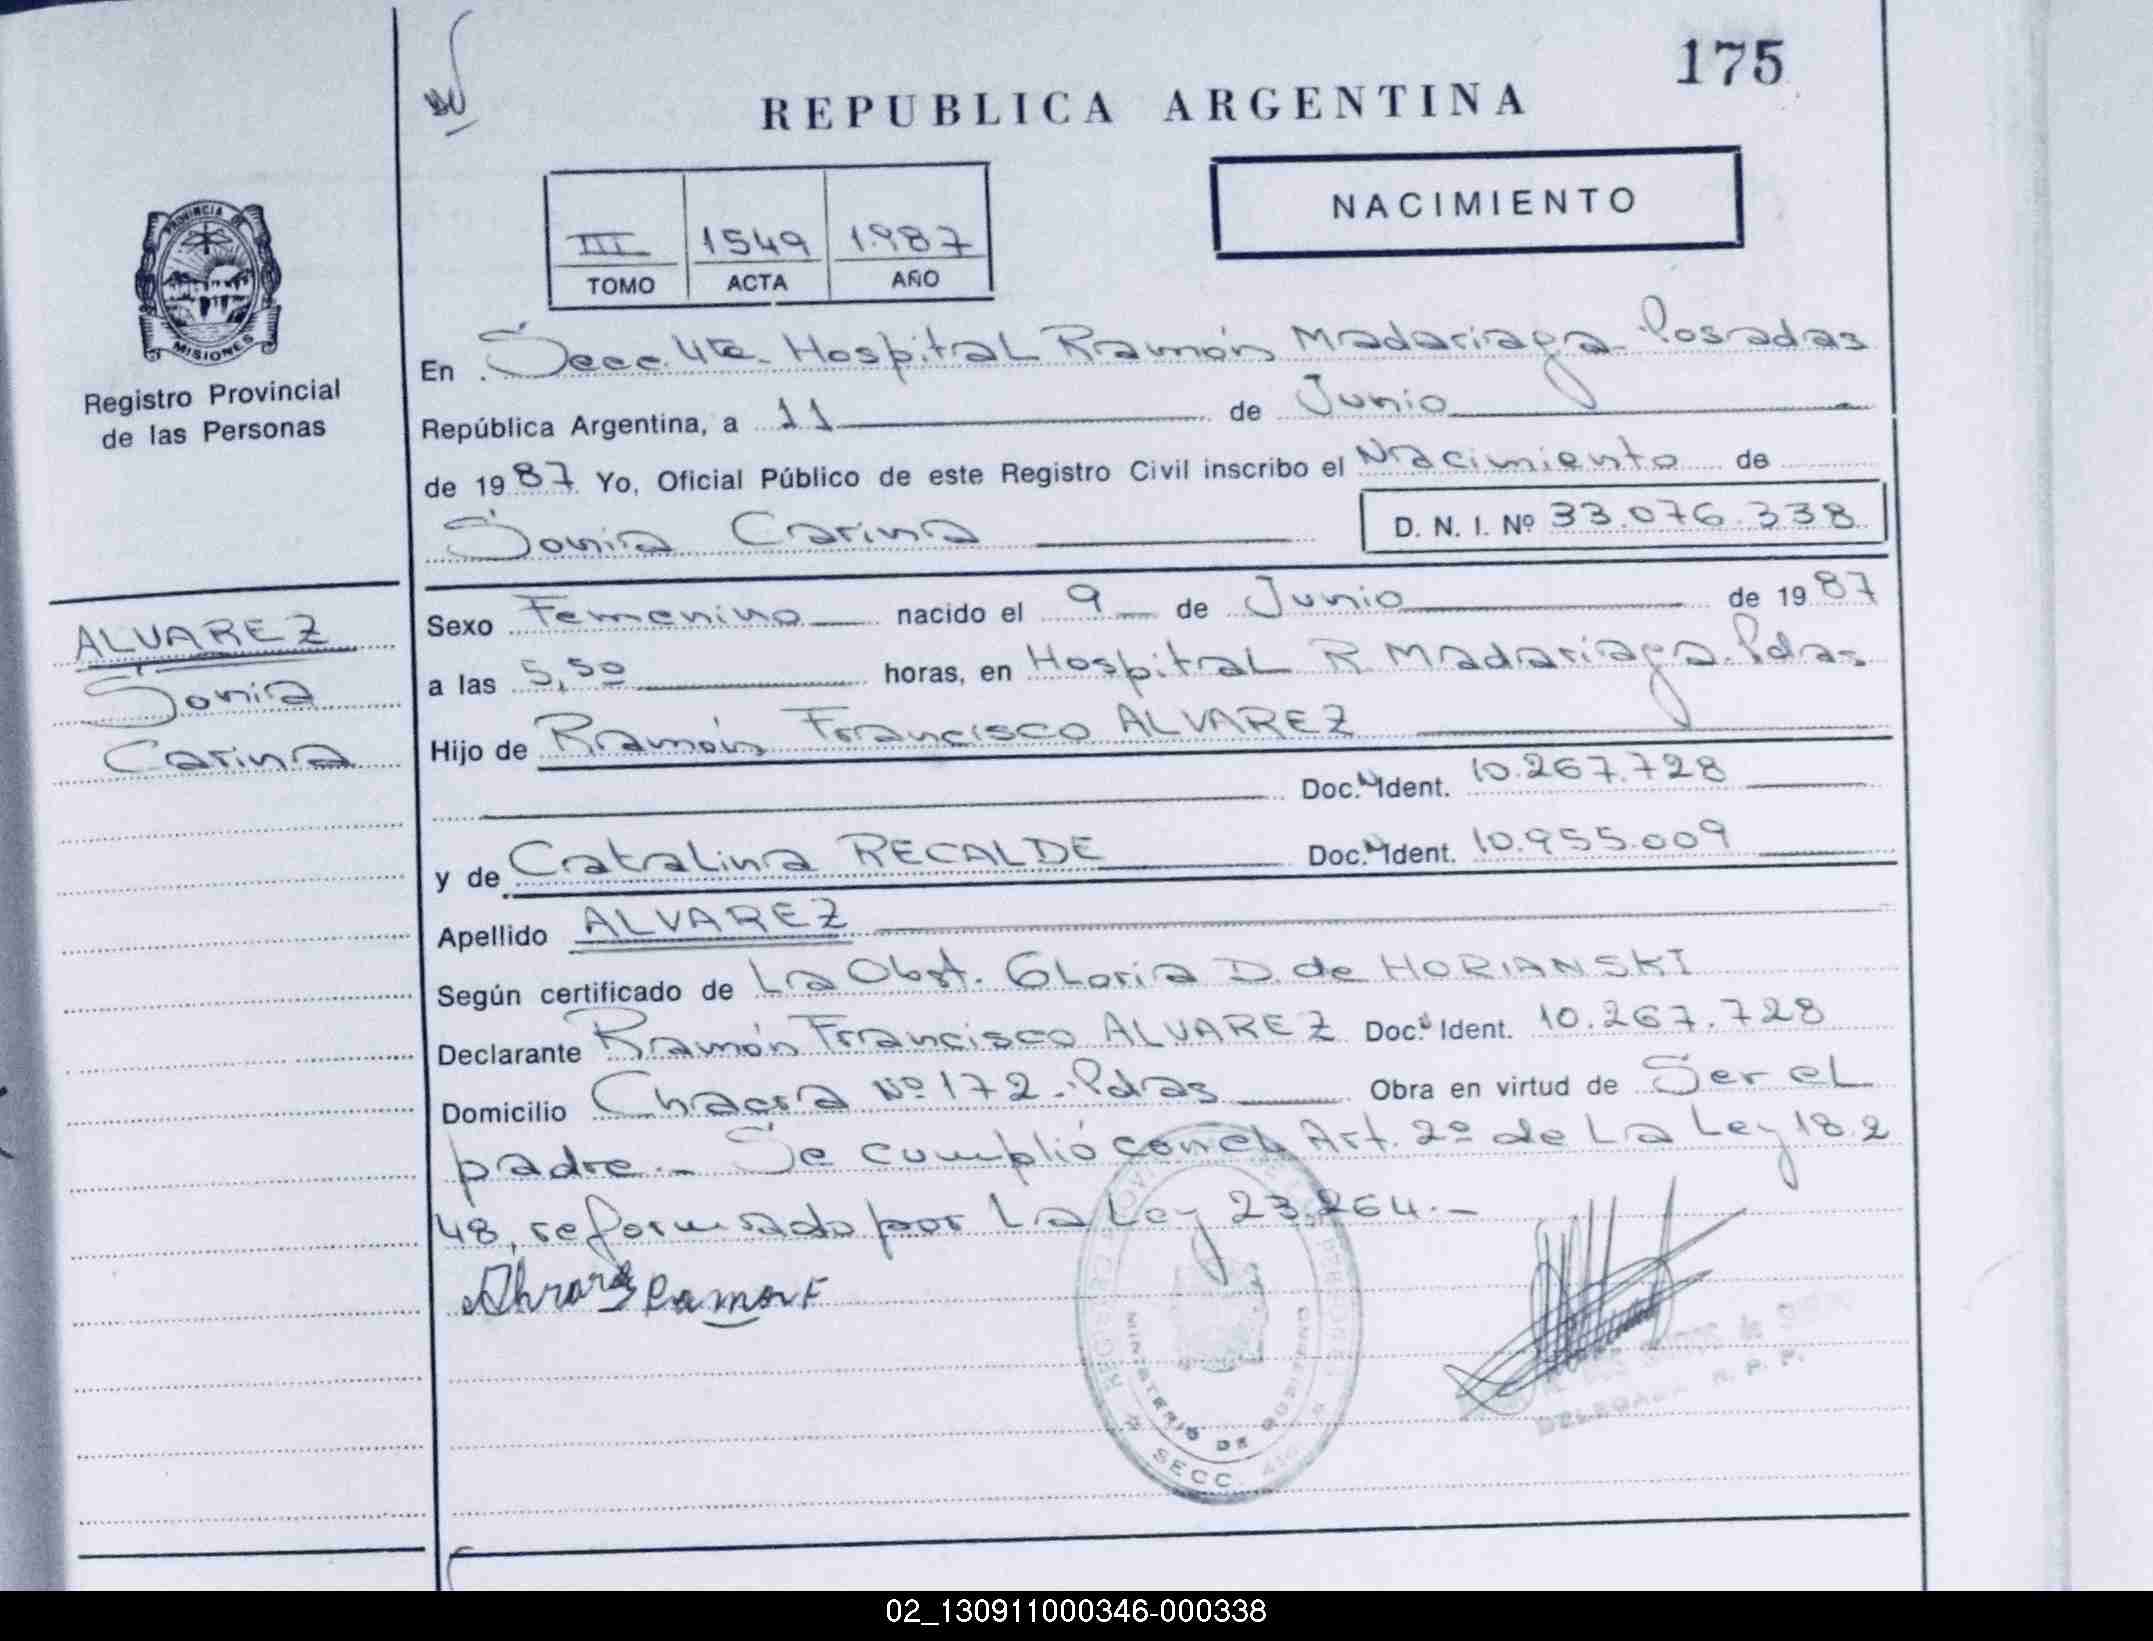 175
REPUBLICA ARGENTINA
NACIMIENTO
III 1549 1.987
TOMO ACTA AÑO
PROVINCIA DE
MISIONES
Registro Provincial
de las Personas
ALVAREZ
Sonia
Carina
En Secc. 4ta. Hospital Ramón Madariaga. Posadas
República Argentina, a 11 de Junio
de 1987 Yo, Oficial Público de este Registro Civil inscribo el Nacimiento de
Sonia Carina D. N. I. Nº 33.076.338
Sexo Femenino nacido el 9 de Junio de 1987
a las 5,50 horas, en Hospital R. Madariaga. Pdas.
Hijo de Ramón Francisco ALVAREZ
Doc. Ident. 10.267.728
y de Catalina RECALDE Doc. Ident. 10.955.009
Apellido ALVAREZ
Según certificado de La Obst. Gloria D. de HORIANSKI
Declarante Ramón Francisco ALVAREZ Doc. Ident. 10.267.728
Domicilio Chacra Nº 172. Pdas Obra en virtud de Ser el
padre.- Se cumplió con el Art. 2º de La Ley 18.2
48, reformado por La Ley 23.264.-
Alvarez Ramon F
MINISTERIO DE GOBIERNO
SECC. 4ta
R. P. P.
02_130911000346-000338